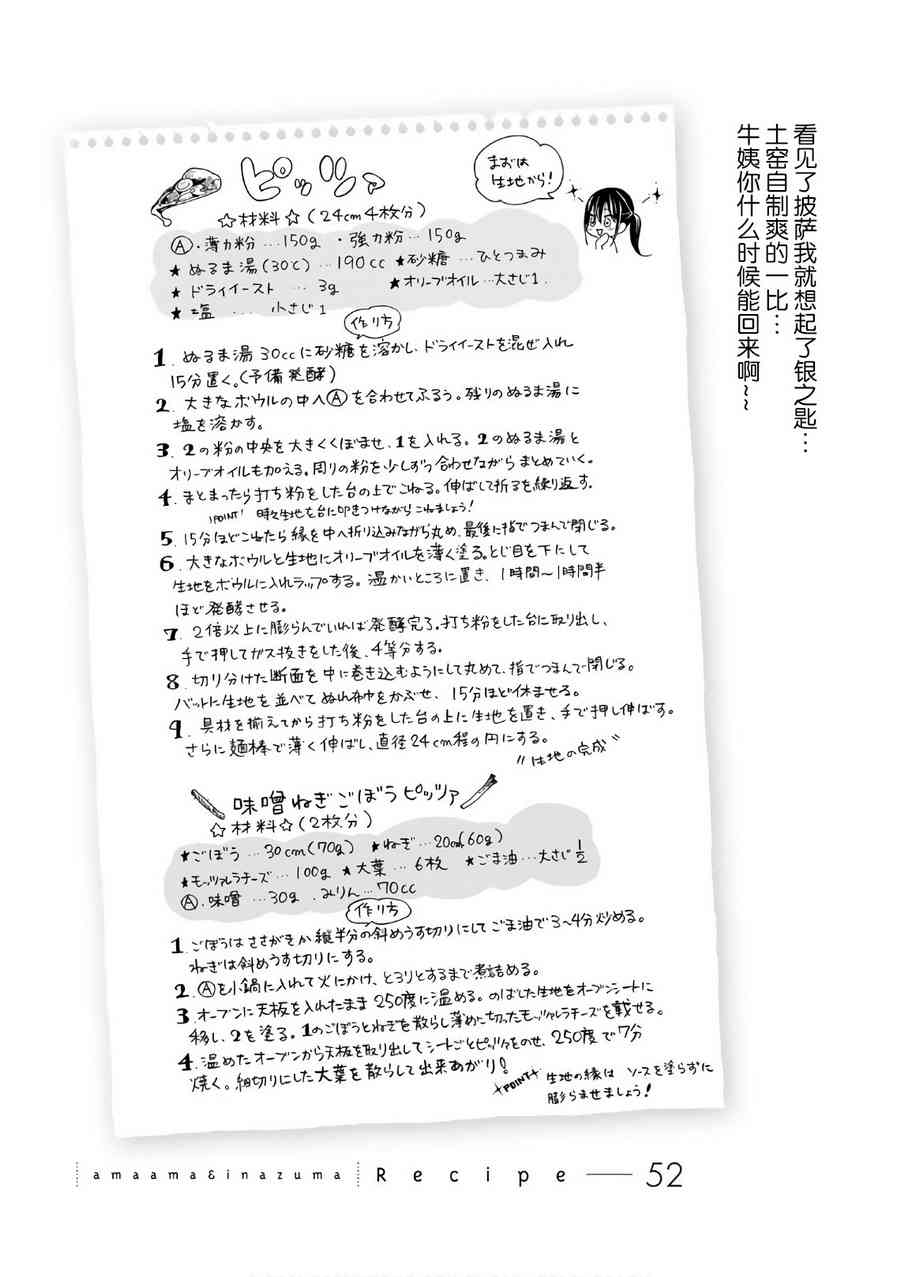 看见了披萨我就想起了银之匙…
土窑自制爽的一比…
牛姨你什么时候能回来啊~~
ピッツァ
まずは
生地から!
☆材料☆(24cm4枚分)
Ⓐ・薄力粉…150g ・強力粉…150g
★ぬるま湯(30℃)…190cc ★砂糖…ひとつまみ
★ドライイースト …3g ★オリーブオイル…大さじ1.
★塩 … 小さじ1
作り方
1. ぬるま湯30ccに砂糖を溶かし、ドライイーストを混ぜ入れ
15分置く。(予備発酵)
2. 大きなボウルの中へⒶを合わせてふるう。残りのぬるま湯に
塩を溶かす。
3. 2の粉の中央を大きくくぼませ、1を入れる。2のぬるま湯と
オリーブオイルも加える。周りの粉を少しずつ合わせながらまとめていく。
4. まとまったら打ち粉をした台の上でこねる。伸ばして折るを繰り返す。
!POINT! 時々生地を台に叩きつけながらこねましょう!
5. 15分ほどこねたら縁を中へ折り込みながら丸め、最後に指でつまんで閉じる。
6. 大きなボウルと生地にオリーブオイルを薄く塗る。とじ目を下にして
生地をボウルに入れラップする。温かいところに置き、1時間〜1時間半
ほど発酵させる。
7. 2倍以上に膨らんでいれば発酵完了。打ち粉をした台に取り出し、
手で押してガス抜きをした後、4等分する。
8. 切り分けた断面を中に巻き込むようにして丸めて、指でつまんで閉じる。
バットに生地を並べてぬれ布巾をかぶせ、15分ほど休ませる。
9. 具材を揃えてから打ち粉をした台の上に生地を置き、手で押し伸ばす。
さらに麺棒で薄く伸ばし、直径24cm程の円にする。
"生地の完成"
味噌ねぎごぼうピッツァ
☆材料☆(2枚分)
★ごぼう…30cm(70g) ★ねぎ…20cm(60g)
★モッツァレラチーズ…100g ★大葉…6枚 ★ごま油…大さじ1/2
Ⓐ.味噌…30g .みりん…70cc
作り方
1. ごぼうはささがきか縦半分の斜めうす切りにしてごま油で3~4分炒める。
ねぎは斜めうす切りにする。
2. Ⓐを小鍋に入れて火にかけ、とろりとするまで煮詰める。
3. オーブンに天板を入れたまま250度に温める。のばした生地をオーブンシートに
移し、2を塗る。1のごぼうとねぎを散らし薄めに切ったモッツァレラチーズを載せる。
4. 温めたオーブンから天板を取り出してシートごとピッツァをのせ、250度で7分
焼く。細切りにした大葉を散らして出来あがり!
POINT 生地の縁は ソースを塗らずに
膨らませましょう!
amaama&inazuma Recipe 52